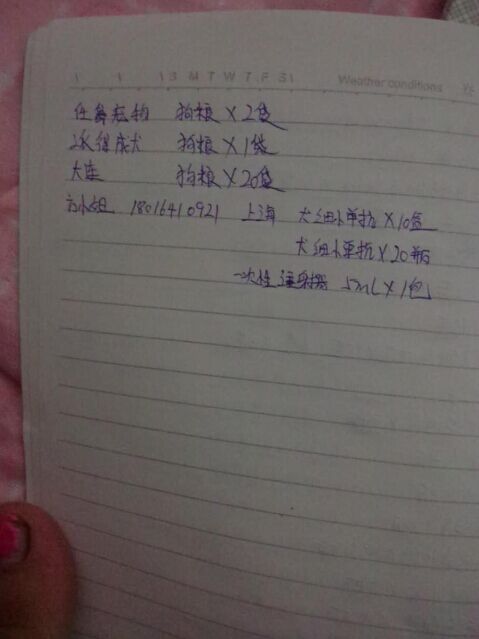 \ \ \3 M T W T F S\ Weather conditions
狗粮 X 2袋
成犬 狗粮 X 1袋
大座 狗粮 X 20袋
方小姐 18016410921 上海 犬细小单抗 X 10盒
犬细小单抗 X 20瓶
一次性注射器 5ml X 1包